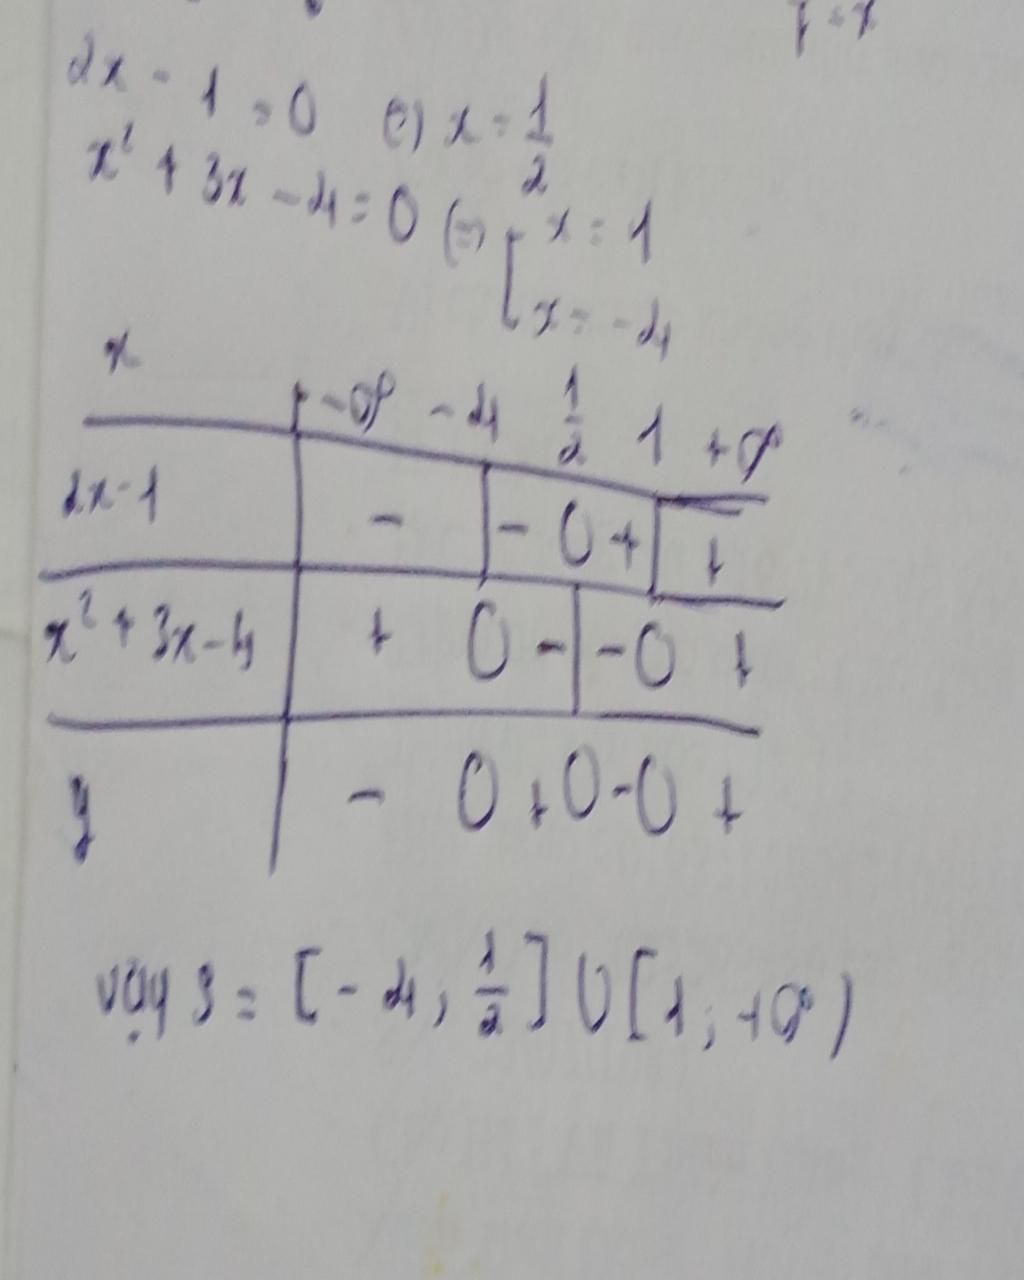 2x - 1 = 0 (=) x = 1/2
x² + 3x - 4 = 0 (=) [ x = 1
x = -4
x -∞ -4 1/2 1 +∞
2x-1 - | - 0 + | +
x² + 3x - 4 + 0 - | - 0 +
y - 0 + 0 - 0 +
vậy S = [-4, 1/2] ∪ [1; +∞)